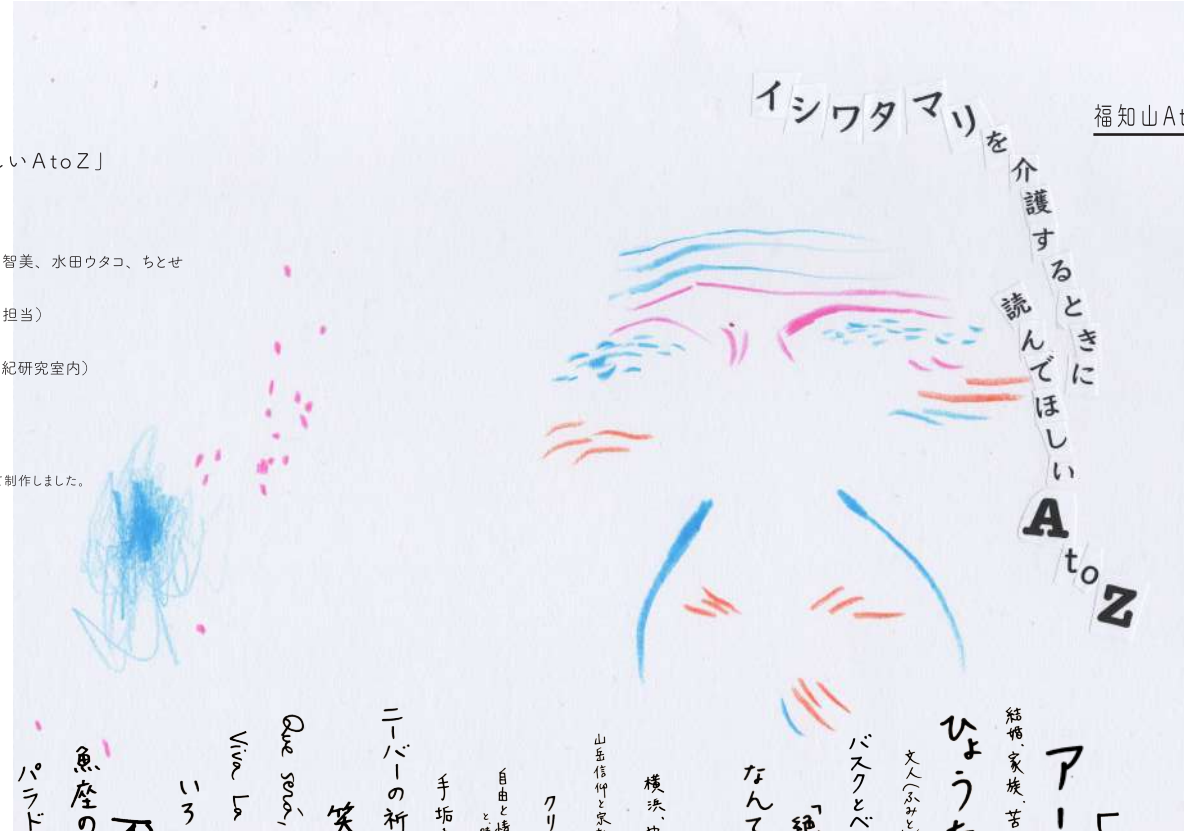 イシワタマリを介護するときに
読んでほしい
A to Z
福知山At
しいAtoZ」
智美、水田ウタコ、ちとせ
担当）
紀研究室内）
て制作しました。
アー
結婚、家族、苦
ひょうた
文人（ふみと
バスクとベ
「絶
なんて
横浜、
山岳信仰と
クリ
自由と
手垢
ニーバーの祈
笑
Que será,
Viva La
いろ
魚座の
パラド